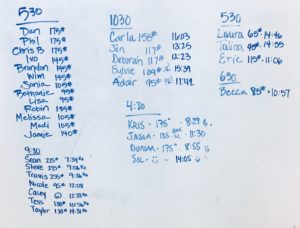 530
Dan 175#
Phil 175#
Chris B 175#
Ivo 145#
Brandon 145#
Wim 145#
Sonia 105#
Bethanie 95#
Lisa 95#
Robin 135#
Melissa 105#
Madi 105#
Jamie 140#
9:30
Sean 225# 7:34
Steve 235# 9:06
Travis 255# 9:36
Nicole 95# 12:09
Casey 12:33
Tess 130# 10:36
Taylor 130# 14:31
1030
Carla 135# 16:03
Jen 117# 13:25
Deborah 117# 12:23
Sylvie 109# 15:39
Adair 95# 11:42
4:30
KRIS - 175# 8:29
JASON - 175 - 11:30
DUNCAN - 175# 8:55
SOL - 14:05
530
Laura 65# 14:46
Talina 95# 14:55
Eric 115# 11:06
630
Becca 85# 10:57